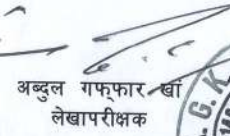 अब्दुल गफ्फार खां
लेखापरीक्षक
G. K